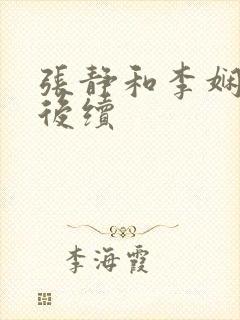 張靜和李娴
後續
李海霞